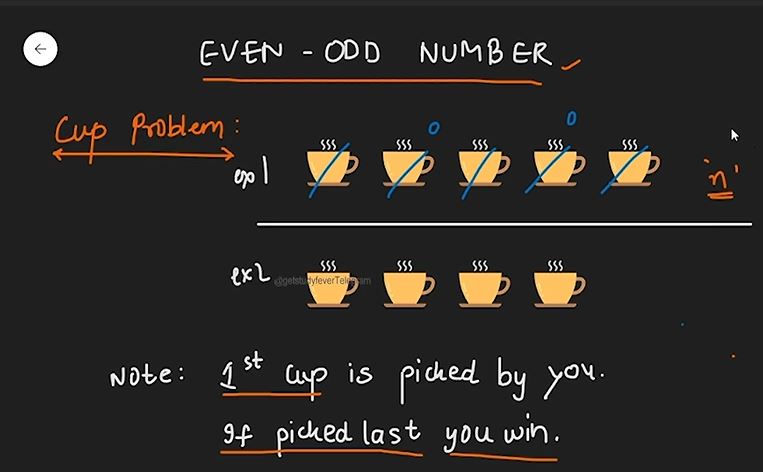 EVEN - ODD NUMBER
Cup Problem:
ex1
0
0
'n'
ex2
@getstudyfeverTelegram
Note: 1st cup is picked by you.
If picked last you win.